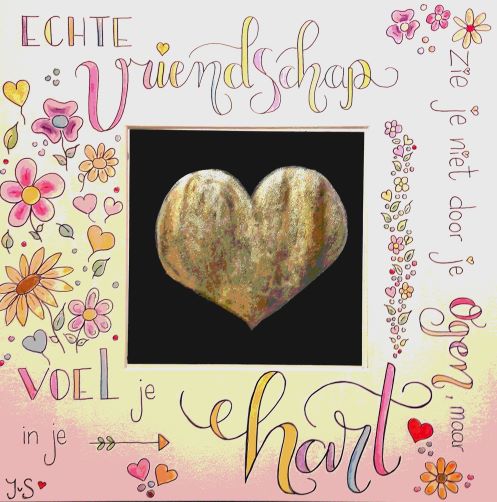 ECHTE
Vriendschap
zie je niet door je
Ogen, maar
VOEL je
in je
hart
JvS